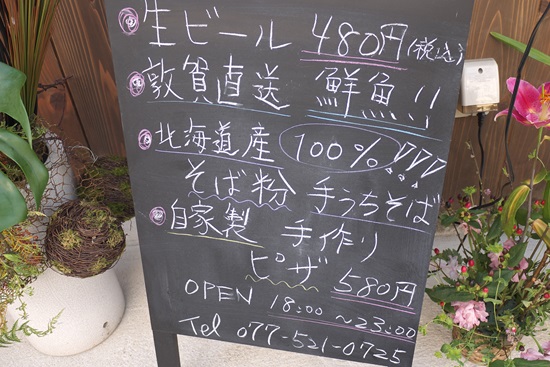 生ビール 480円(税込)
敦賀直送 鮮魚!!
北海道産 100%!!!
そば粉 手うちそば
自家製 手作り
ピザ 580円
OPEN 18:00 ~23:00
Tel 077-521-0725